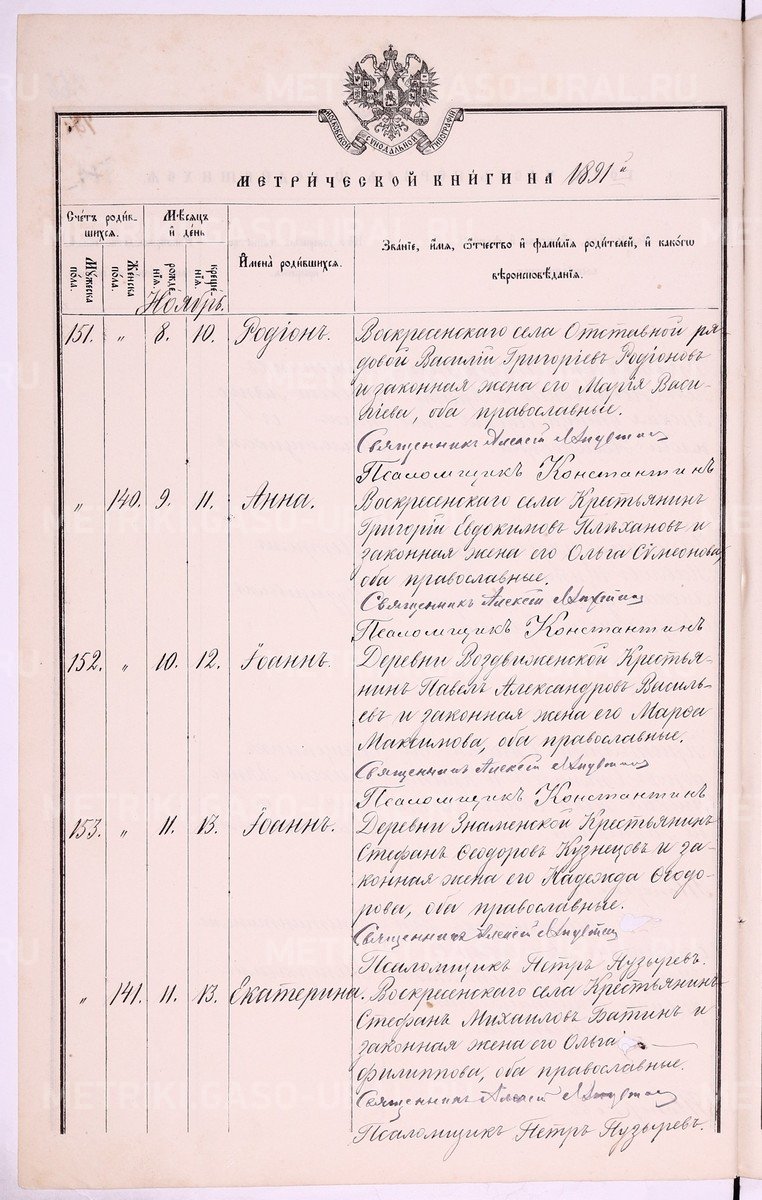 МОСКОВСКОЙ СѴНОДАЛЬНОЙ ТИПОГРАФІИ
МЕТРИ́ЧЕСКОЙ КНИ́ГИ НА 1891й
Сче́тъ роди́вшихся.
Мꙋ́жеска по́ла.
Же́нска по́ла.
Мѣ́сяцъ и҆ де́нь
рожде́нїѧ.
креще́нїѧ.
И҆мена̀ роди́вшихсѧ.
Зва́нїе, и҆́мѧ, ѻ҆́тчество и҆ фами́лїѧ роди́телей, и҆ како́гѡ
вѣроисповѣ́данїѧ.
Ноябрь.
151. „ 8. 10. Родіонъ. Воскресенскаго села Отставной ря-
довой Василій Григоріевъ Родіоновъ
и законная жена его Марія Васи-
ліева, оба православные.
Священникъ Алексѣй
Псаломщикъ Константинъ
„ 140. 9. 11. Анна. Воскресенскаго села Крестьянинъ
Григорій Евдокимовъ Плѣхановъ и
законная жена его Ольга Сѵмеонова,
оба православные.
Священникъ Алексѣй
Псаломщикъ Константинъ
152. „ 10. 12. Іоаннъ. Деревни Воздвиженской Крестья-
нинъ Павелъ Александровъ Василь-
евъ и законная жена его Марѳа
Максимова, оба православные.
Священникъ Алексѣй
Псаломщикъ Константинъ
153. „ 11. 13. Іоаннъ. Деревни Знаменской Крестьянинъ
Стефанъ Ѳеодоровъ Кузнецовъ и за-
конная жена его Надежда Ѳеодо-
рова, оба православные.
Священникъ Алексѣй
Псаломщикъ Петръ Пузыревъ.
„ 141. 11. 13. Екатерина. Воскресенскаго села Крестьянинъ
Стефанъ Михаиловъ Батинъ и
законная жена его Ольга
Филиппова, оба православные.
Священникъ Алексѣй
Псаломщикъ Петръ Пузыревъ.